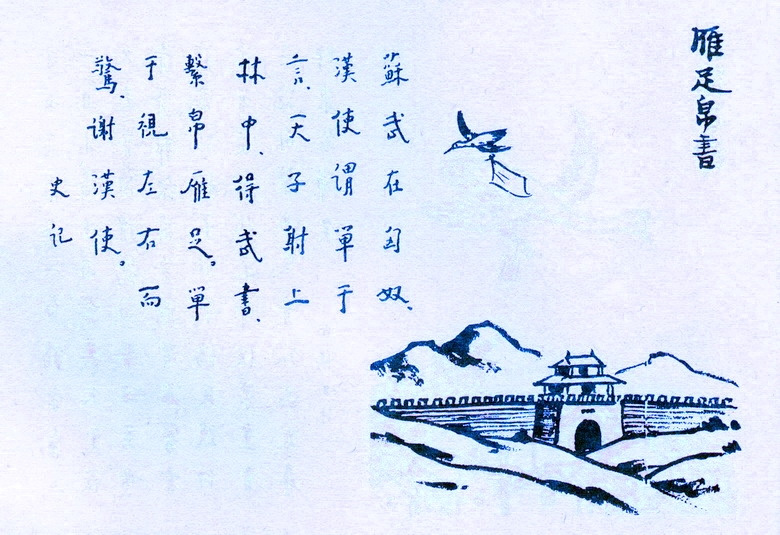 雁足帛書
蘇武在匈奴、
漢使謂單于
言、天子射上
林中、得武書、
繫帛雁足。單
于視左右而
驚、謝漢使。
史记